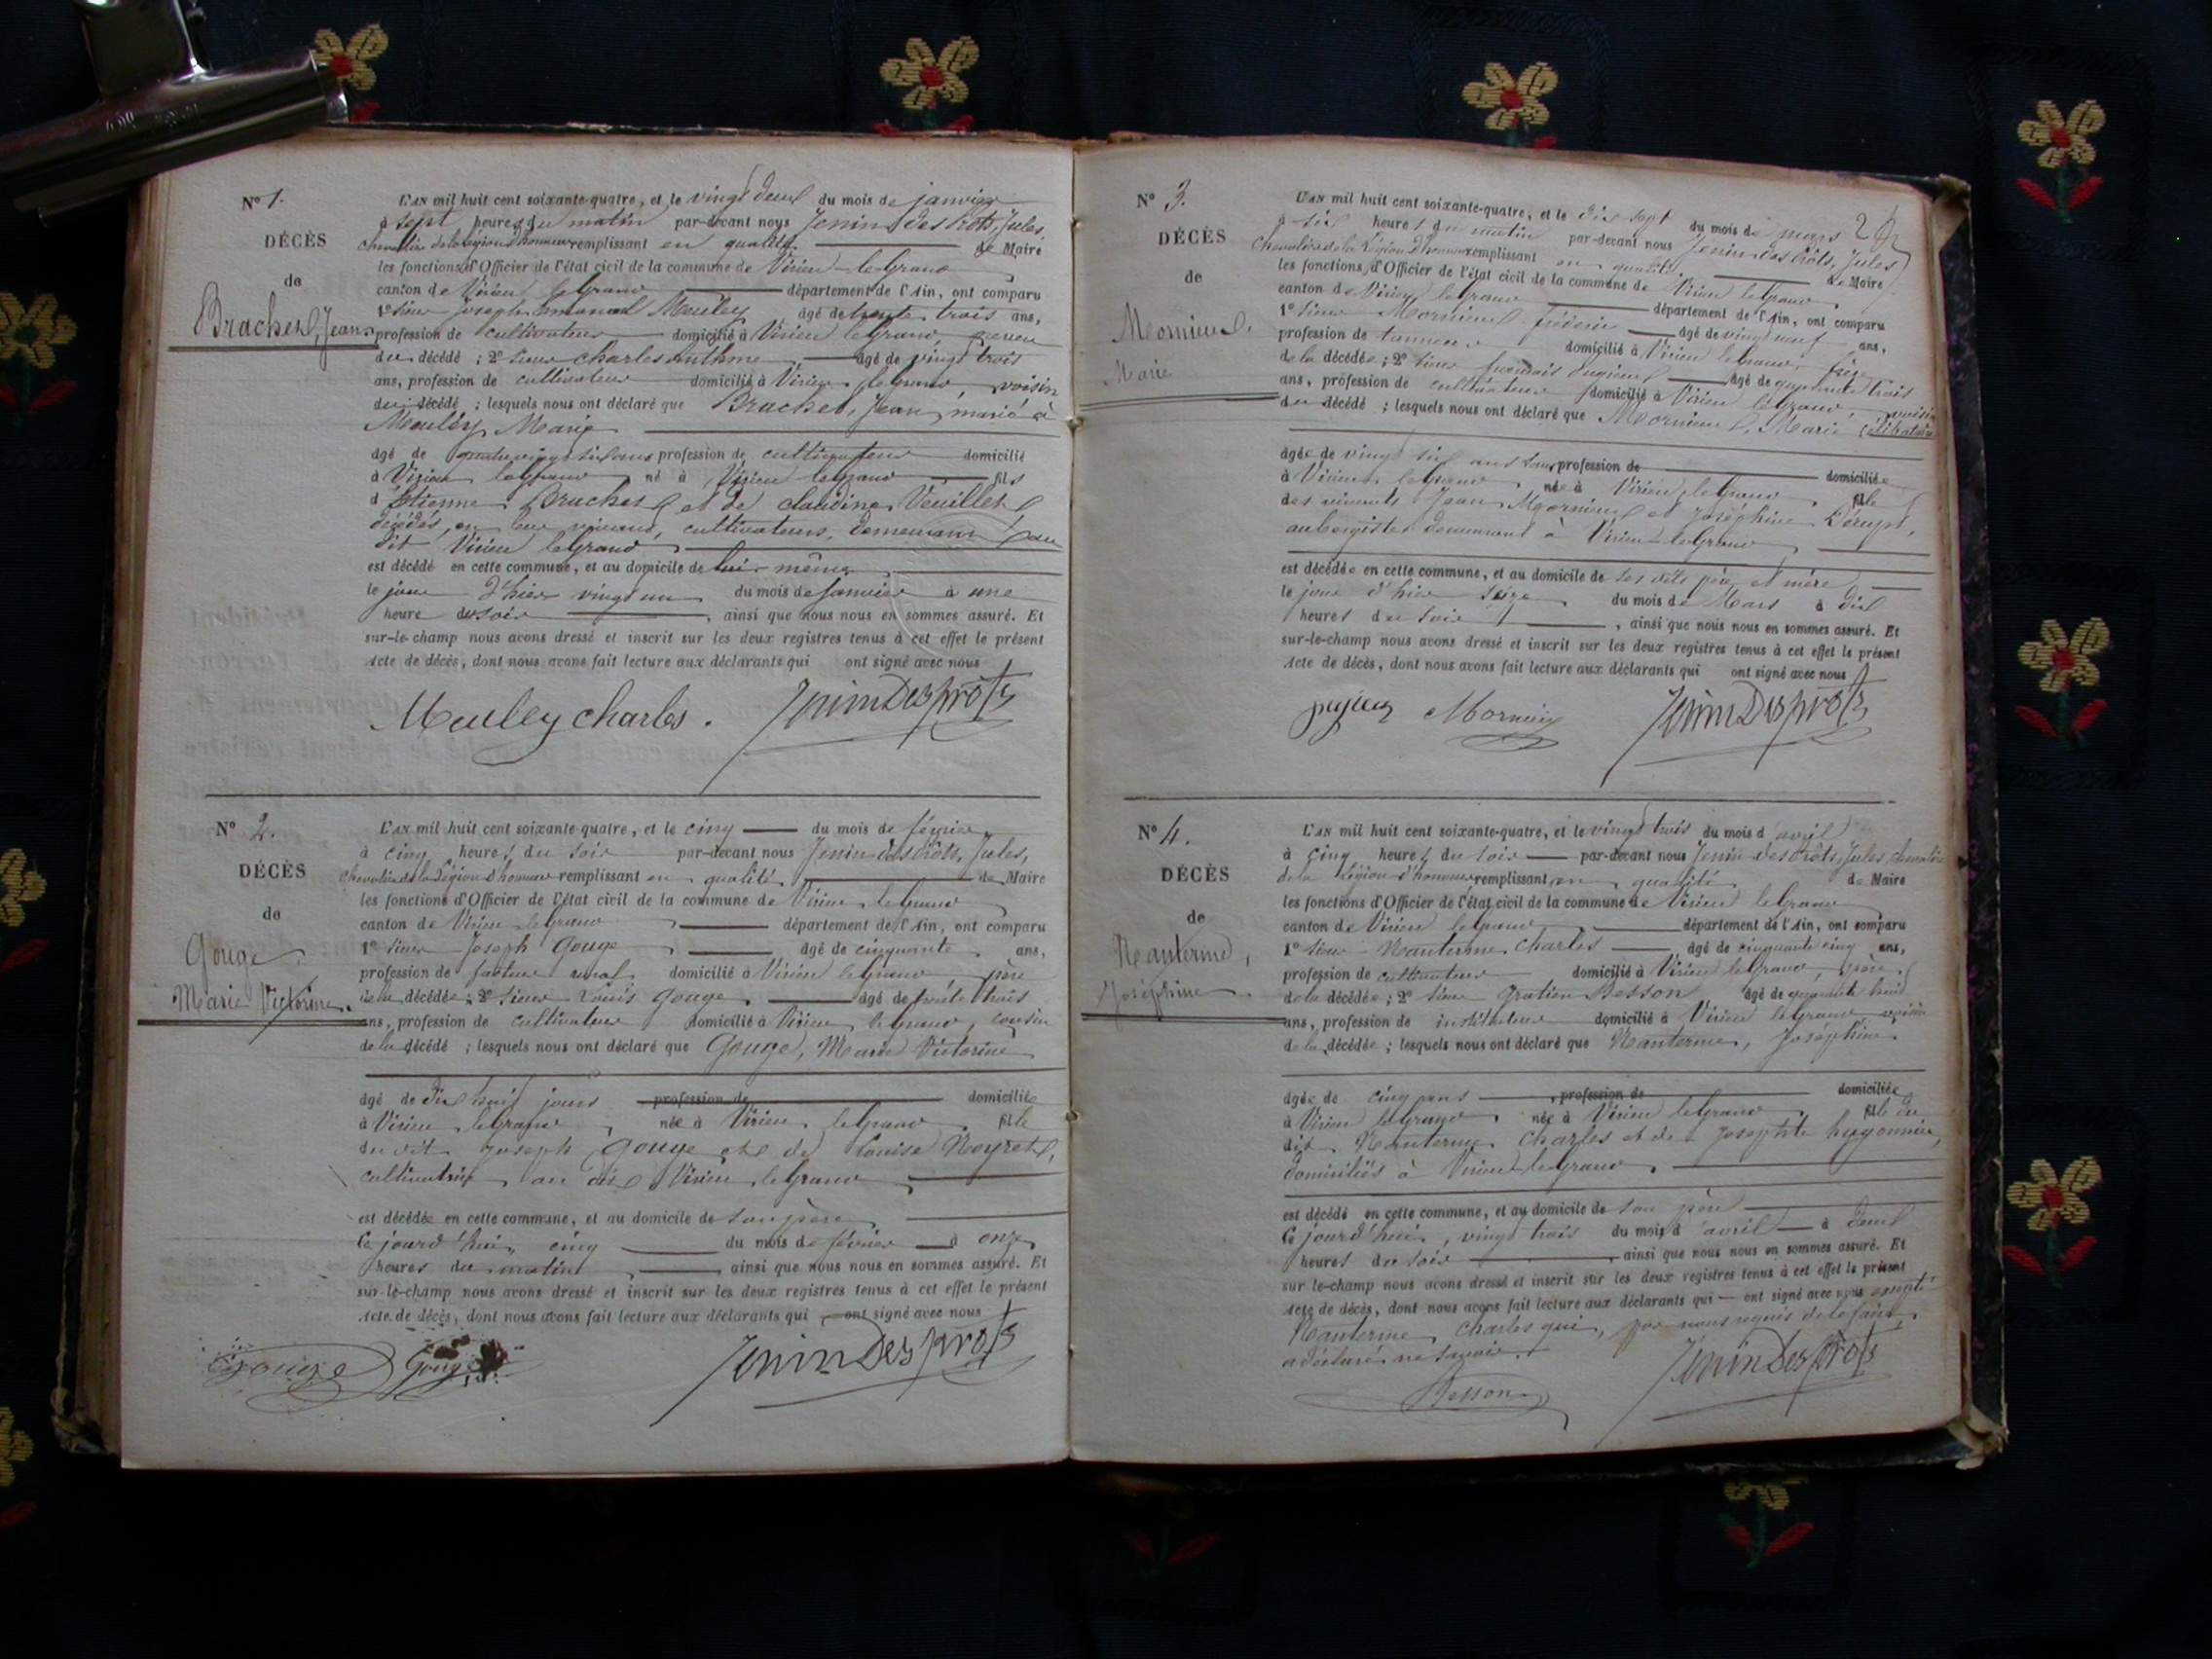 N° 1.
DÉCÈS
de
Brachet, Jean
L'AN mil huit cent soixante-quatre, et le vingt deux du mois de janvier
à sept heures du matin par-devant nous Jenin des Prôts, Jules,
chevalier de la légion d'honneur remplissant en qualité de Maire
les fonctions d'Officier de l'état civil de la commune de Virieu-le-Grand
canton de Virieu le Grand département de l'Ain, ont comparu
1° sieur Joseph Meuley âgé de trente trois ans,
profession de cultivateur domicilié à Virieu le Grand, neveu
du décédé ; 2° sieur Charles Anthme âgé de vingt trois
ans, profession de cultivateur domicilié à Virieu le Grand, voisin
du décédé ; lesquels nous ont déclaré que Brachet, Jean, marié à
Meuley, Marie
âgé de quatre vingt six ans profession de cultivateur domicilié
à Virieu le Grand né à Virieu le Grand fils
d'Etienne Brachet et de Claudine Veuillet
décédés, en leur vivant, cultivateurs, demeurant au
dit Virieu le Grand
est décédé en cette commune, et au domicile de lui-même
le jour d'hier vingt un du mois de janvier à une
heure du soir, ainsi que nous nous en sommes assuré. Et
sur-le-champ nous avons dressé et inscrit sur les deux registres tenus à cet effet le présent
Acte de décès, dont nous avons fait lecture aux déclarants qui ont signé avec nous
Meuley Charles. Jenin Des prôts
N° 2.
DÉCÈS
de
Gouge
Marie Victorine.
L'AN mil huit cent soixante-quatre, et le cinq du mois de février
à cinq heures du soir par-devant nous Jenin des Prôts, Jules,
chevalier de la Légion d'honneur remplissant en qualité de Maire
les fonctions d'Officier de l'état civil de la commune de Virieu le Grand
canton de Virieu le Grand département de l'Ain, ont comparu
1° sieur Joseph Gouge âgé de cinquante ans,
profession de facteur rural domicilié à Virieu le Grand, père
de la décédée ; 2° sieur Louis Gouge, âgé de trente trois
ans, profession de cultivateur domicilié à Virieu le Grand, cousin
de la décédé ; lesquels nous ont déclaré que Gouge, Marie Victorine
âgé de dix huit jours profession de domiciliée
à Virieu le Grand née à Virieu le Grand fille
du dit Joseph Gouge et de Louise Neyret,
cultivatrice au dit Virieu le Grand
est décédée en cette commune, et au domicile de son père
le jourd'hui cinq du mois de février à onze
heures du matin, ainsi que nous nous en sommes assuré. Et
sur-le-champ nous avons dressé et inscrit sur les deux registres tenus à cet effet le présent
Acte de décès, dont nous avons fait lecture aux déclarants qui ont signé avec nous
Gouge Gouge Jenin Des prôts
N° 3.
DÉCÈS
de
Mornieux,
Marie
L'AN mil huit cent soixante-quatre, et le dix sept du mois de mars
à six heures du matin par-devant nous Jenin des Prôts, Jules
Chevalier de la Légion d'honneur remplissant en qualité de Maire
les fonctions d'Officier de l'état civil de la commune de Virieu le Grand
canton de Virieu le Grand département de l'Ain, ont comparu
1° sieur Mornieux frédéric âgé de vingt neuf ans,
profession de tanneur domicilié à Virieu le Grand, frère
de la décédée ; 2° sieur âgé de quarante trois
ans, profession de cultivateur domicilié à Virieu le Grand, voisin
de la décédée ; lesquels nous ont déclaré que Mornieux, Marie célibataire
âgée de vingt six ans sans profession de domiciliée
à Virieu le Grand née à Virieu le Grand fille
des vivants Jean Mornieux et Joséphine
aubergistes demeurant à Virieu-le-Grand
est décédée en cette commune, et au domicile de ses dits père et mère
le jour d'hier seize du mois de Mars à dix
heures du soir, ainsi que nous nous en sommes assuré. Et
sur-le-champ nous avons dressé et inscrit sur les deux registres tenus à cet effet le présent
Acte de décès, dont nous avons fait lecture aux déclarants qui ont signé avec nous
Jenin Des prôts
N° 4.
DÉCÈS
de
Nanterme,
Joséphine.
L'AN mil huit cent soixante-quatre, et le vingt trois du mois d'avril
à cinq heures du soir par-devant nous Jenin des Prôts, Jules, chevalier
de la Légion d'honneur remplissant en qualité de Maire
les fonctions d'Officier de l'état civil de la commune de Virieu le Grand
canton de Virieu le Grand département de l'Ain, ont comparu
1° sieur Nanterme Charles âgé de cinquante cinq ans,
profession de cultivateur domicilié à Virieu le Grand, père
de la décédée ; 2° sieur Gratien Besson âgé de quarante huit
ans, profession de instituteur domicilié à Virieu le Grand voisin
de la décédée ; lesquels nous ont déclaré que Nanterme, Joséphine
âgée de cinq ans profession de domiciliée
à Virieu le Grand née à Virieu le Grand fille du
dit Nanterme Charles et de Josephte hugonnier,
domiciliés à Virieu le Grand
est décédé en cette commune, et au domicile de son père
le jourd'hui, vingt trois du mois d'avril à deux
heures du soir, ainsi que nous nous en sommes assuré. Et
sur le-champ nous avons dressé et inscrit sur les deux registres tenus à cet effet le présent
Acte de décès, dont nous avons fait lecture aux déclarants qui ont signé avec nous excepté
Nanterme, Charles qui, par nous requis de le faire,
a déclaré ne savoir.
Besson Jenin Des prôts